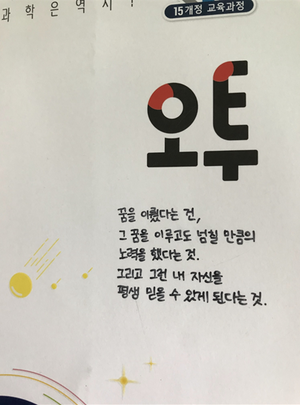 과학은역시!
15개정 교육과정
오투
꿈을 이뤘다는 건,
그 꿈을 이루고도 넘칠 만큼의
노력을 했다는 것.
그리고 그런 내 자신을
평생 믿을 수 있게 된다는 것.